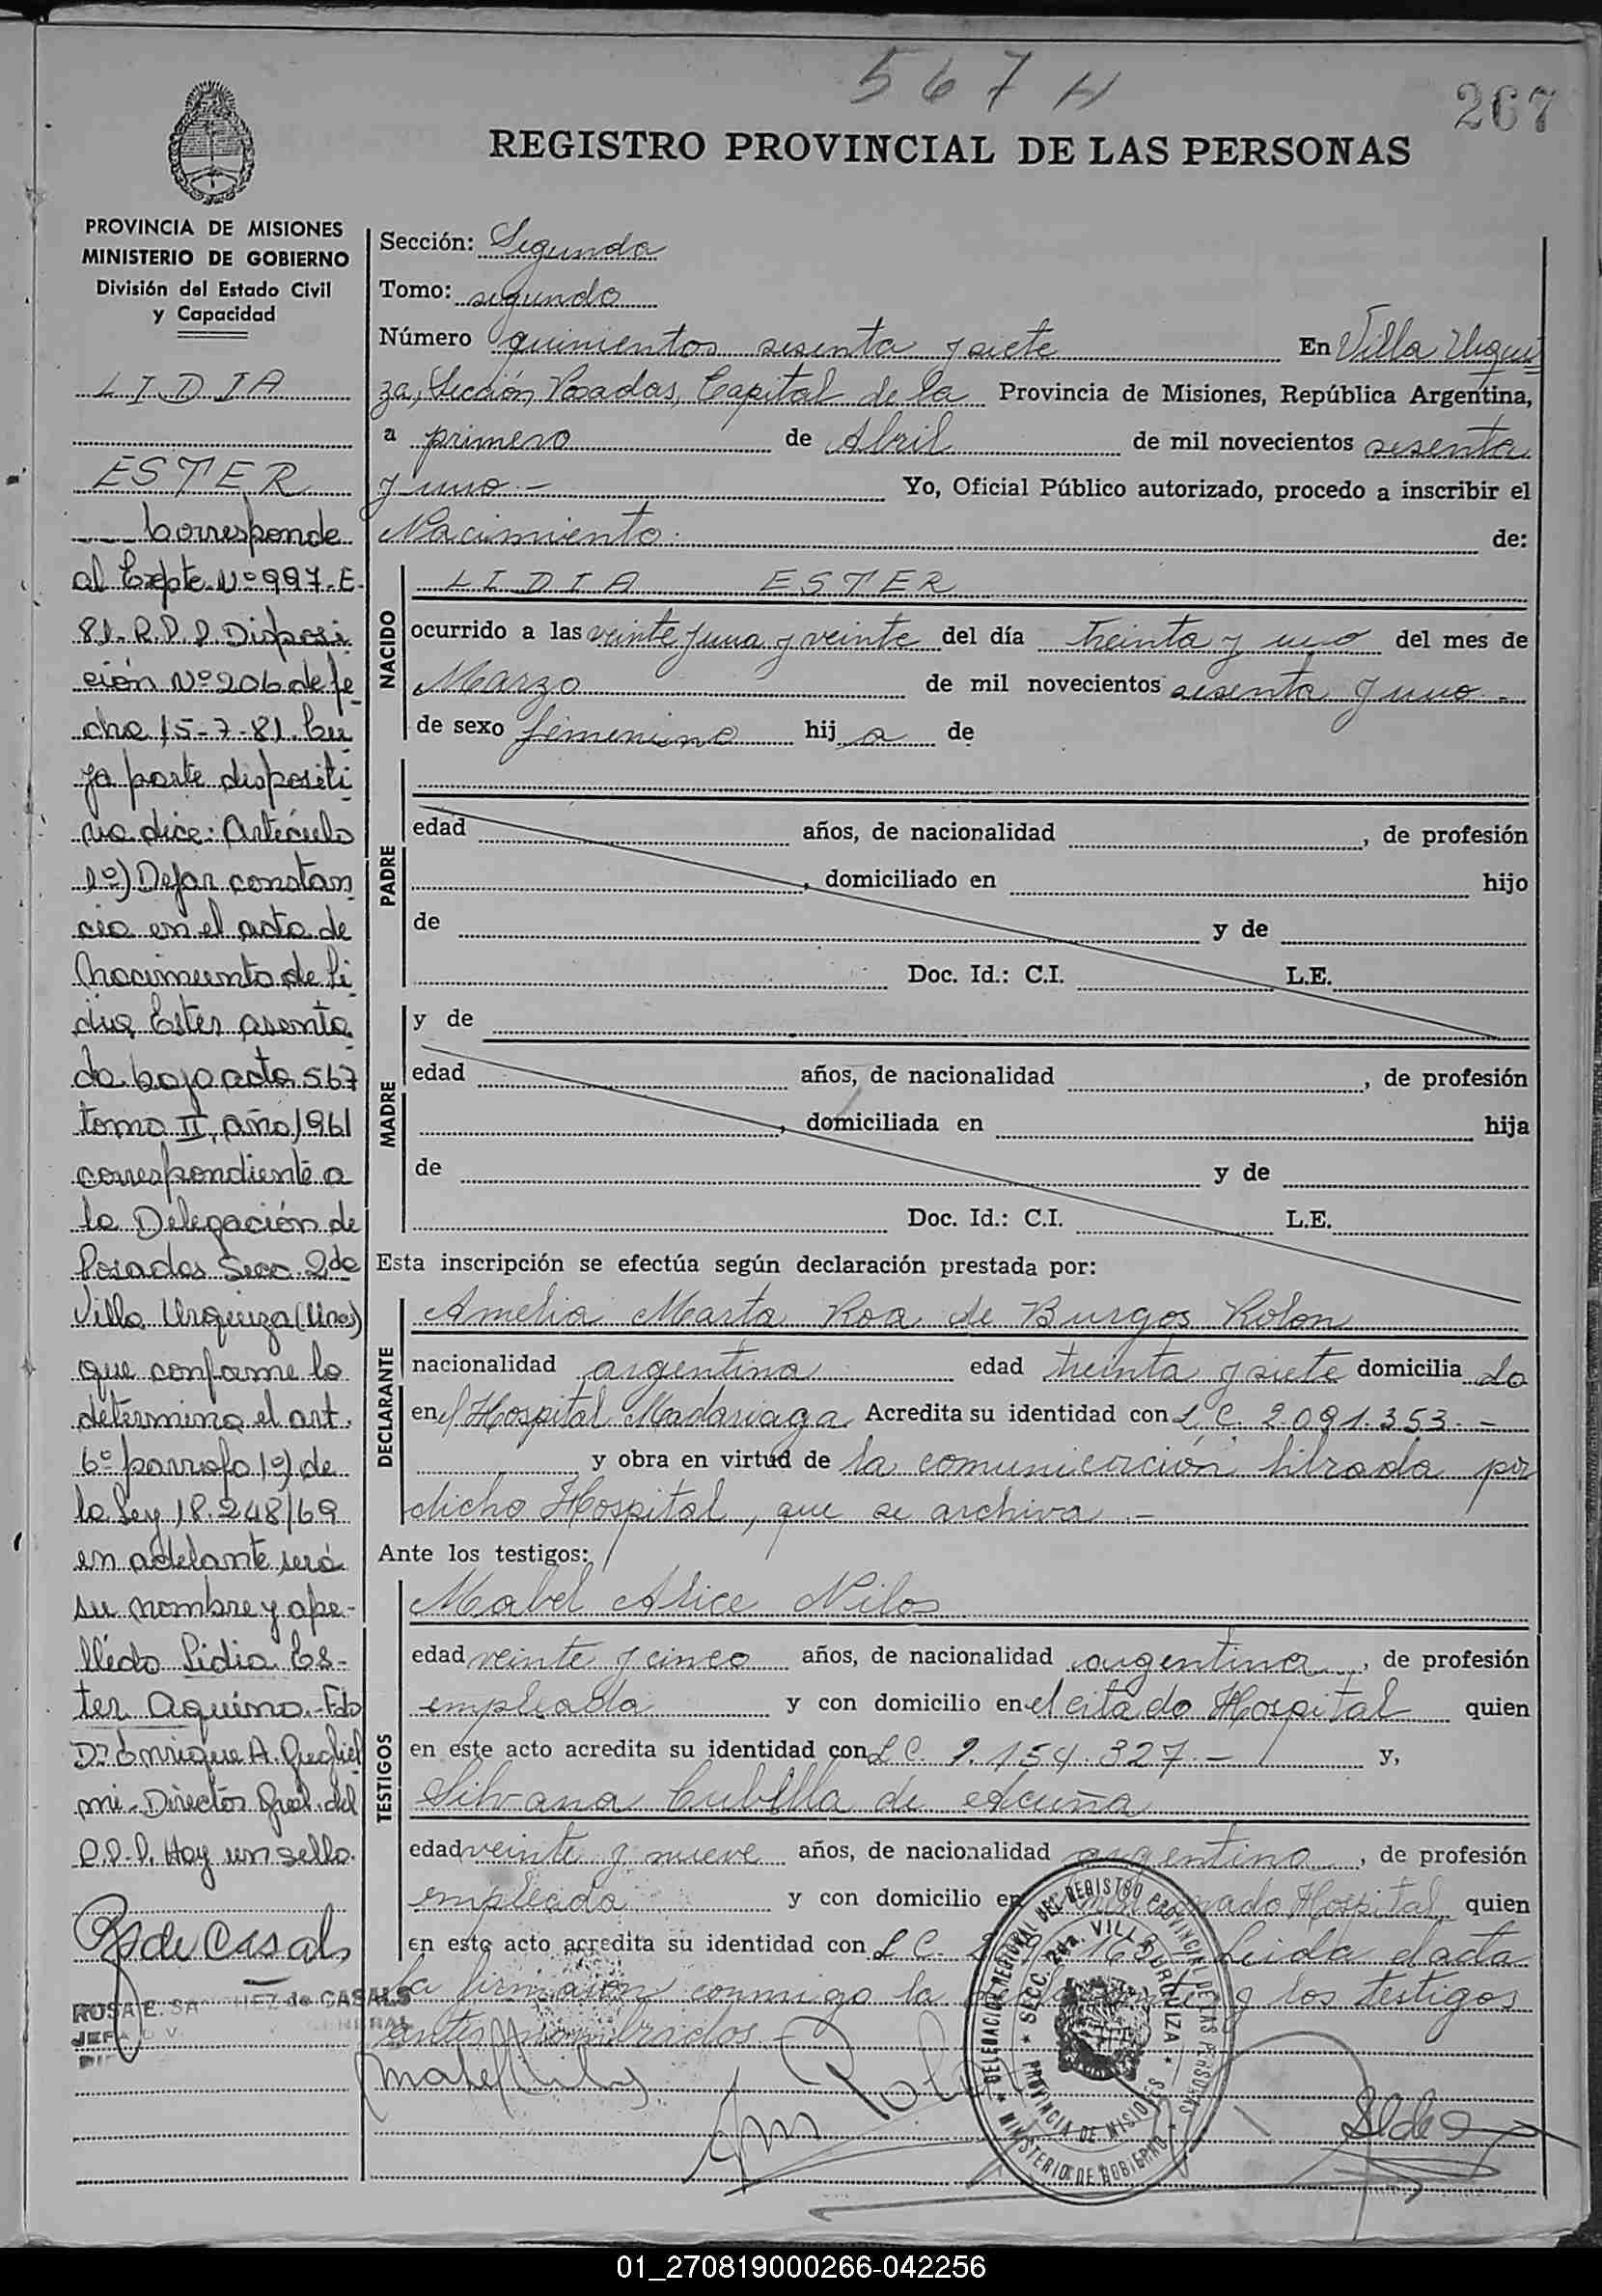 567 H
267
REGISTRO PROVINCIAL DE LAS PERSONAS
PROVINCIA DE MISIONES
MINISTERIO DE GOBIERNO
División del Estado Civil
y Capacidad
LIDIA
ESTER
Corresponde
al Expte Nº 997-E-
81-R.P.P Disposi
ción Nº 206 de fe
cha 15-7-81. Cu
ya parte dispositi
va dice: Artículo
1º) Dejar constan
cia en el acta de
Nacimiento de Li
dia Ester asenta
da bajo acta 567
tomo II, año 1961
correspondiente a
la Delegación de
Posadas Secc. 2da
Villa Urquiza (Mnes)
que conforme lo
determina el art.
6º parrafo 1º) de
la Ley 18.248/69
en adelante será
su nombre y ape-
llido Lidia Es-
ter Aquino.- Fdo
Dr Enrique A. Gugliel
mi - Director Gral. del
R.P.P. Hay un sello.
RS de Casals
ROSA E. SANCHEZ de CASALS
Sección: Segunda
Tomo: segundo
Número quinientos sesenta y siete En Villa Urqui
za, Sección Posadas, Capital de la Provincia de Misiones, República Argentina,
a primero de Abril de mil novecientos sesenta
y uno.- Yo, Oficial Público autorizado, procedo a inscribir el
Nacimiento. de:
NACIDO
LIDIA ESTER
ocurrido a las veinte y una y veinte del día treinta y uno del mes de
Marzo de mil novecientos sesenta y uno.-
de sexo femenino hij a de
PADRE
edad años, de nacionalidad , de profesión
, domiciliado en hijo
de y de
Doc. Id.: C.I. L.E.
MADRE
y de
edad años, de nacionalidad , de profesión
, domiciliada en hija
de y de
Doc. Id.: C.I. L.E.
Esta inscripción se efectúa según declaración prestada por:
DECLARANTE
Amelia Marta Roa de Burgos Rolon
nacionalidad argentina edad treinta y siete domicilia da
en el Hospital Madariaga Acredita su identidad con L.C. 2.091.353.-
y obra en virtud de la comunicación librada por
dicho Hospital, que se archiva.-
Ante los testigos:
TESTIGOS
Mabel Alice Nilos
edad veinte y cinco años, de nacionalidad argentina, de profesión
empleada y con domicilio en el citado Hospital quien
en este acto acredita su identidad con L.C. 9.154.327.- y,
Silvana Cubilla de Acuña
edad veinte y nueve años, de nacionalidad argentina, de profesión
empleada y con domicilio en Hospital quien
en este acto acredita su identidad con L.C. Leida el acta
la firmaron conmigo la y los testigos
antes nombrados.-
DELEGACION REGIONAL DEL REGISTRO PROVINCIAL DE LAS PERSONAS
SECC. 2da. VILLA URQUIZA
PROVINCIA DE MISIONES
MINISTERIO DE GOBIERNO
01_270819000266-042256